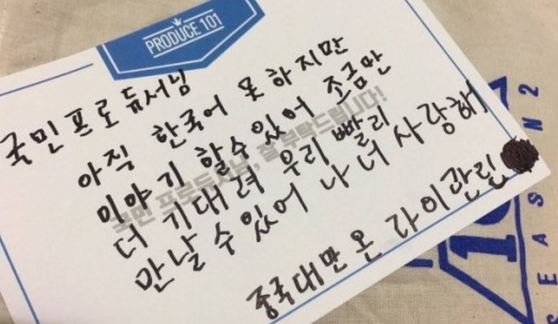 PRODUCE 101
국민프로듀서님
아직 한국어 못 하지만
이야기 할수있어 조금만
더 기대려 우리 빨리
만날 수 있어 나 너 사랑해
중국대만 온 라이관린
국민 프로듀서님, 잘 부탁드립니다!
SEASON 2